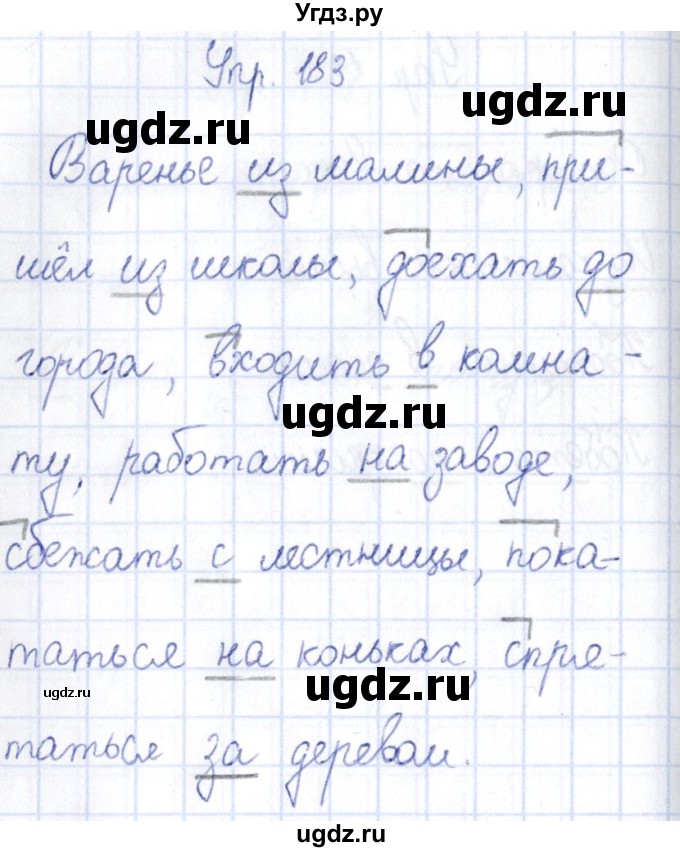 Угдз.ру
Упр. 183
ugdz.ru
ugdz.ru
Варенье из малины, при-
шёл из школы, доехать до
города, входить в комна-
ugdz.ru
ту, работать на заводе,
сбежать с лестницы, пока-
таться на коньках, спря-
ugdz.ru
ugdz.ru
таться за деревом.
ugdz.ru